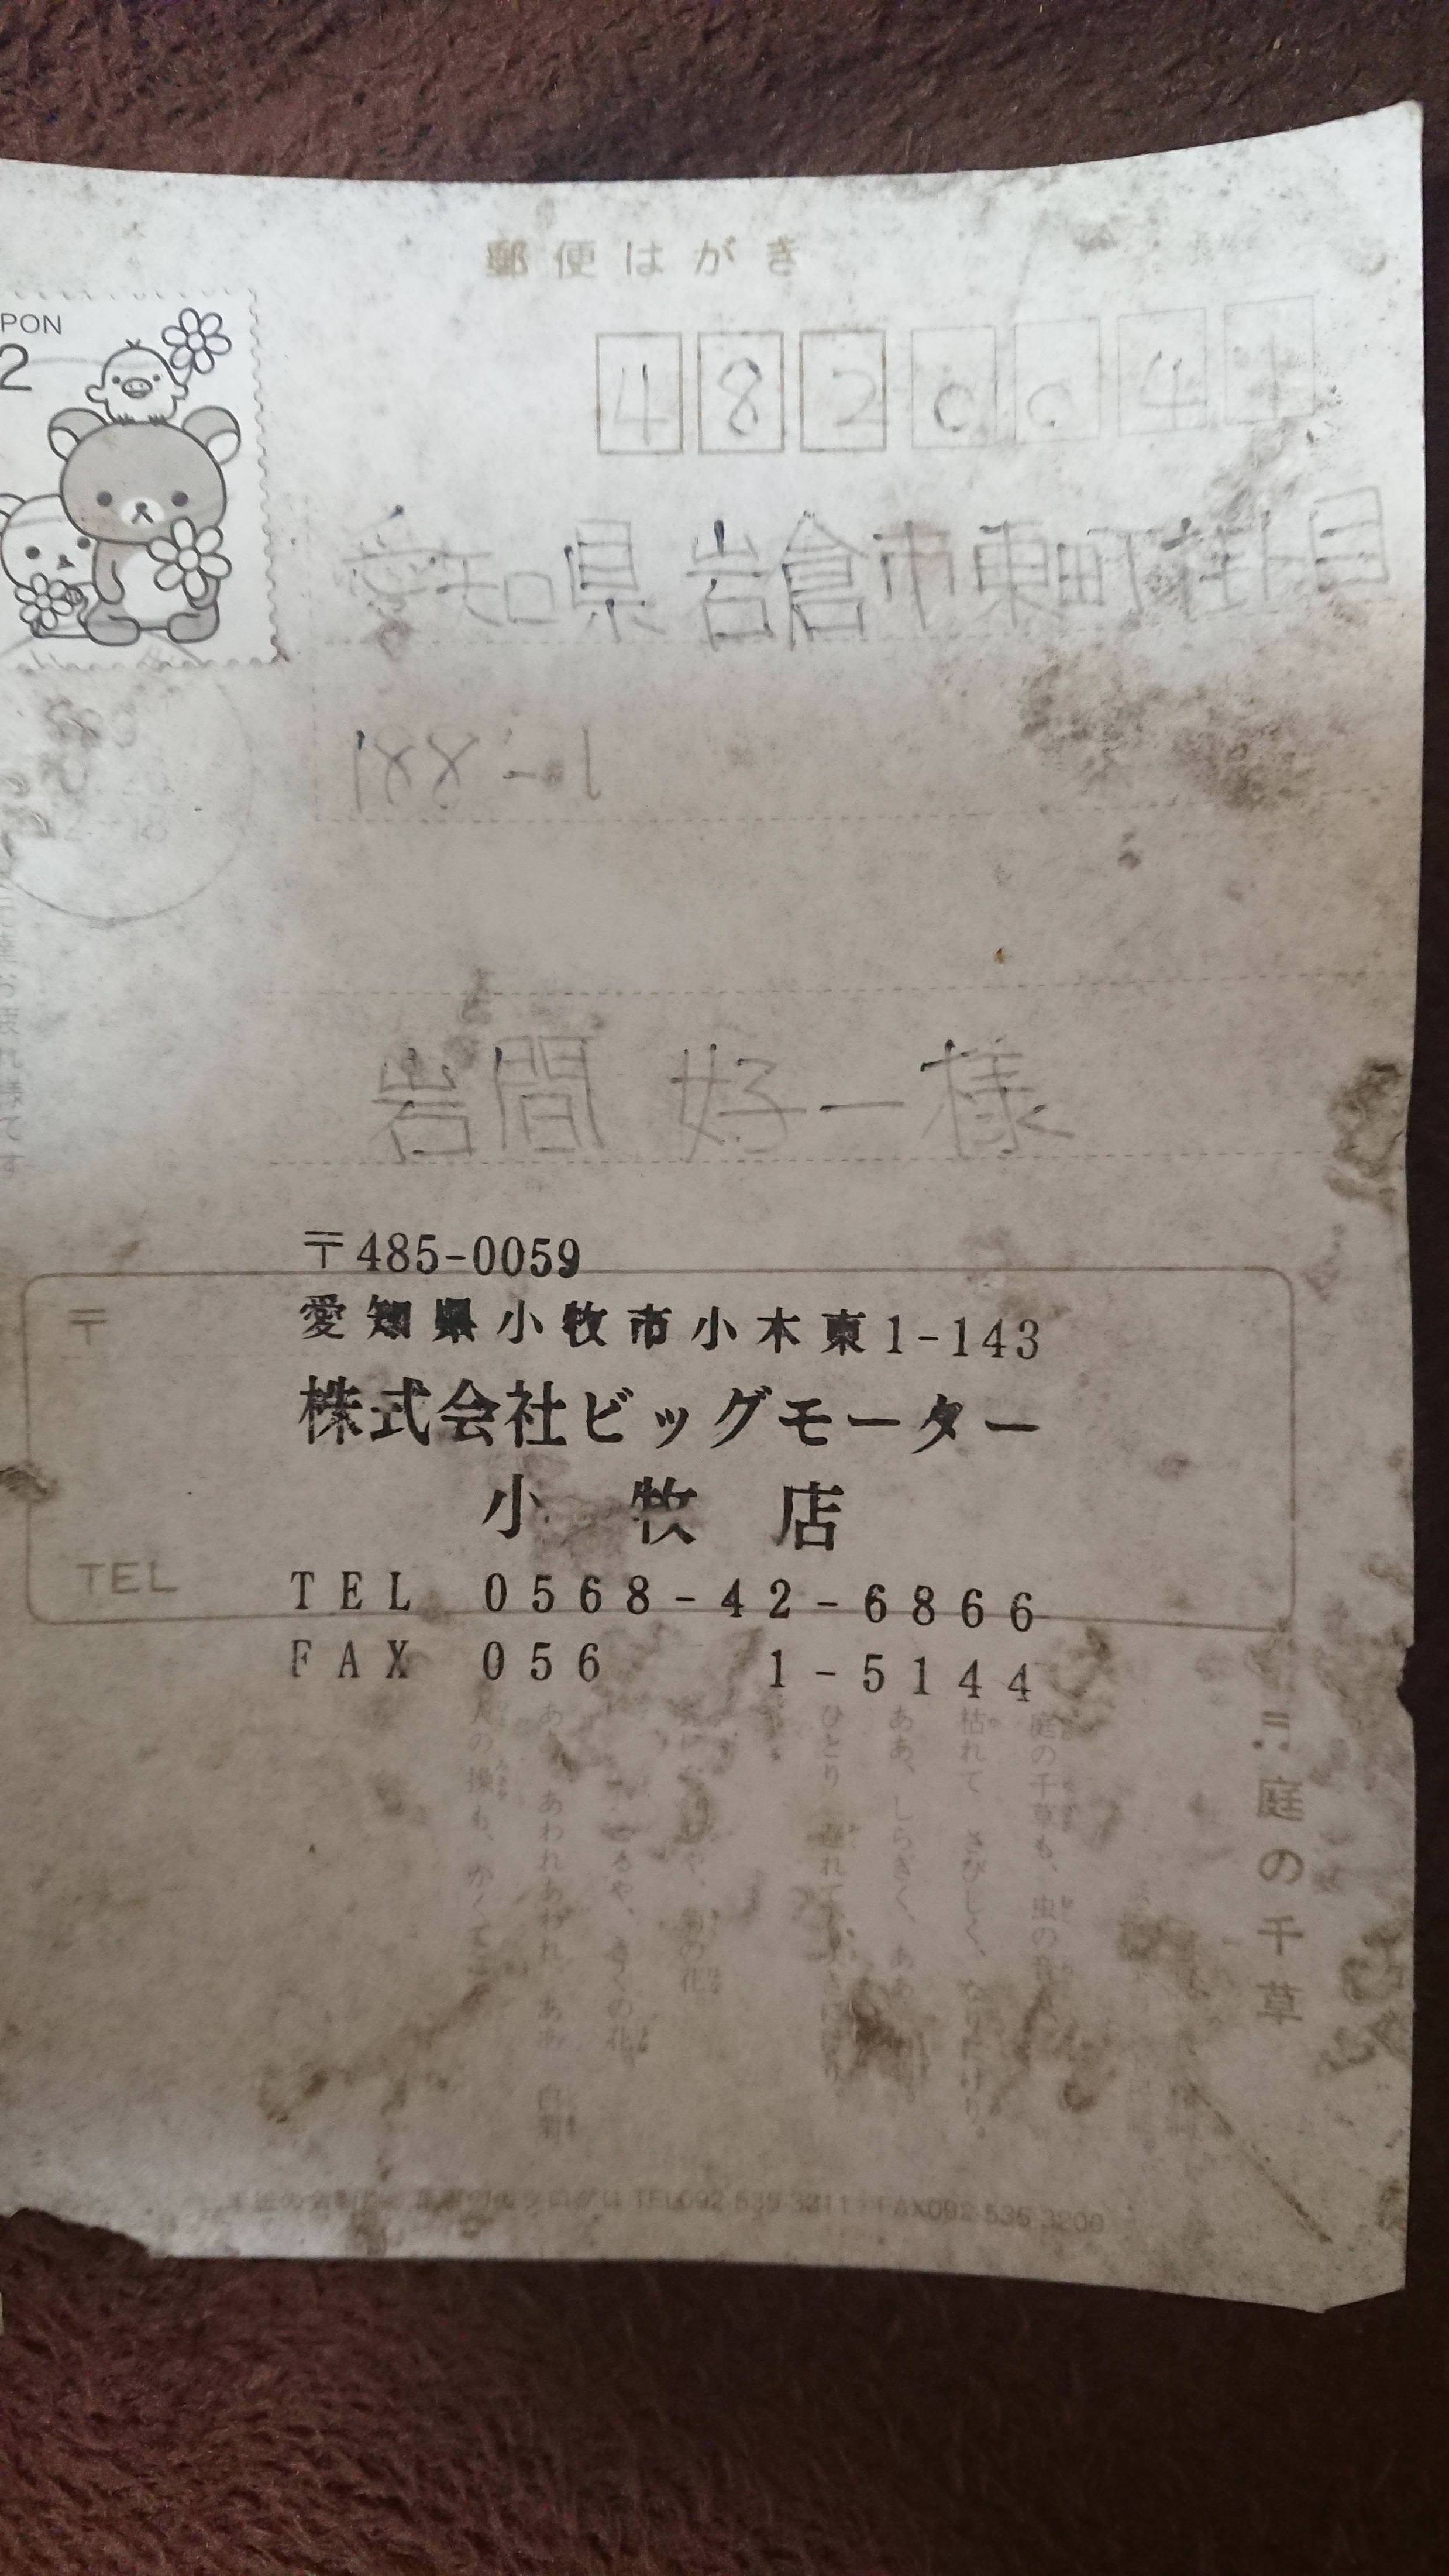 郵便はがき
PON
2
4820041
愛知県 岩倉市東町掛目
188-1
岩間 好一様
〒485-0059
愛知県小牧市小木東1-143
株式会社ビッグモーター
小牧店
〒
TEL
TEL 0568-42-6866
FAX 056 1-5144
♬庭の千草
庭の千草も、虫の
枯れて さびしく、
ああ、しらぎく、ああ
ひとり
菊の花
きくの花
あわれあわれ ああ 白菊
人の操も、かくてこそ
TEL092 535 3211 FAX092 535 3200